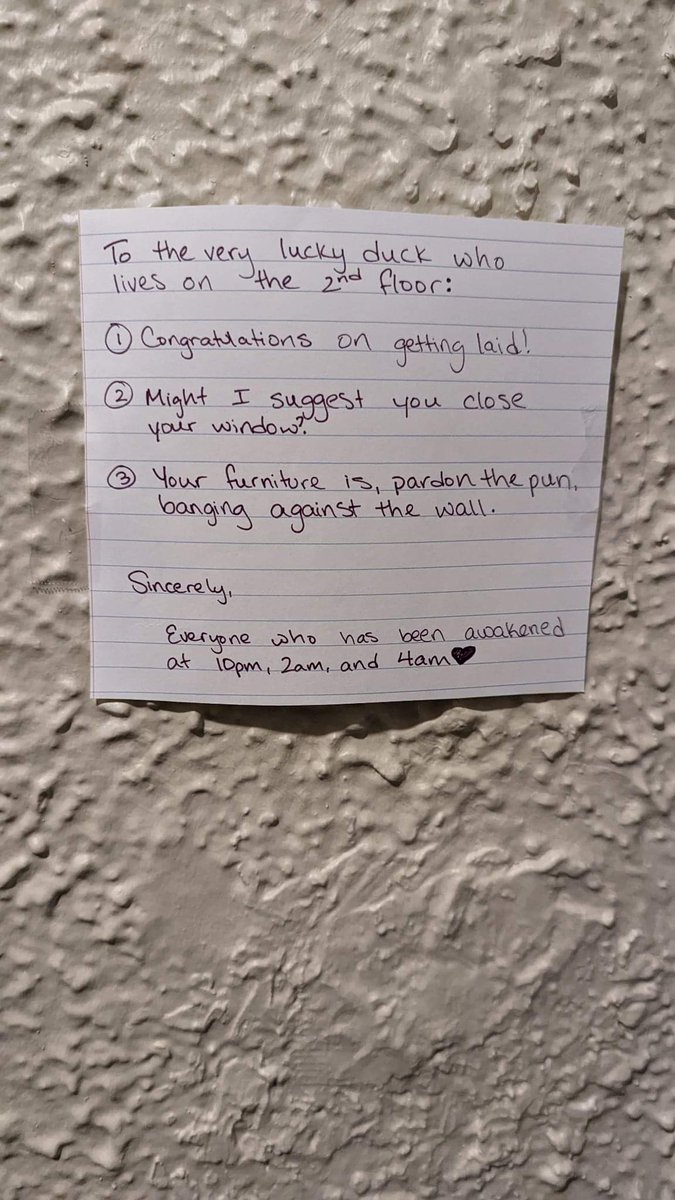 To the very lucky duck who
lives on the 2nd floor:
① Congratulations on getting laid!
② Might I suggest you close
your window?
③ Your furniture is, pardon the pun,
banging against the wall.
Sincerely,
Everyone who has been awakened
at 10pm, 2am, and 4am♥